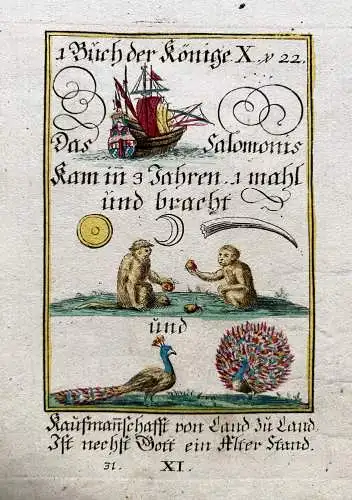 1 Buch der Könige X. v 22.
Das Salomonis
Kam in̄ 3 Jahren. 1 mahl
und bracht
und
Kaufman̄schafft von Land zu Land.
Ist nechst Gott ein Alter Stand.
31. XI.